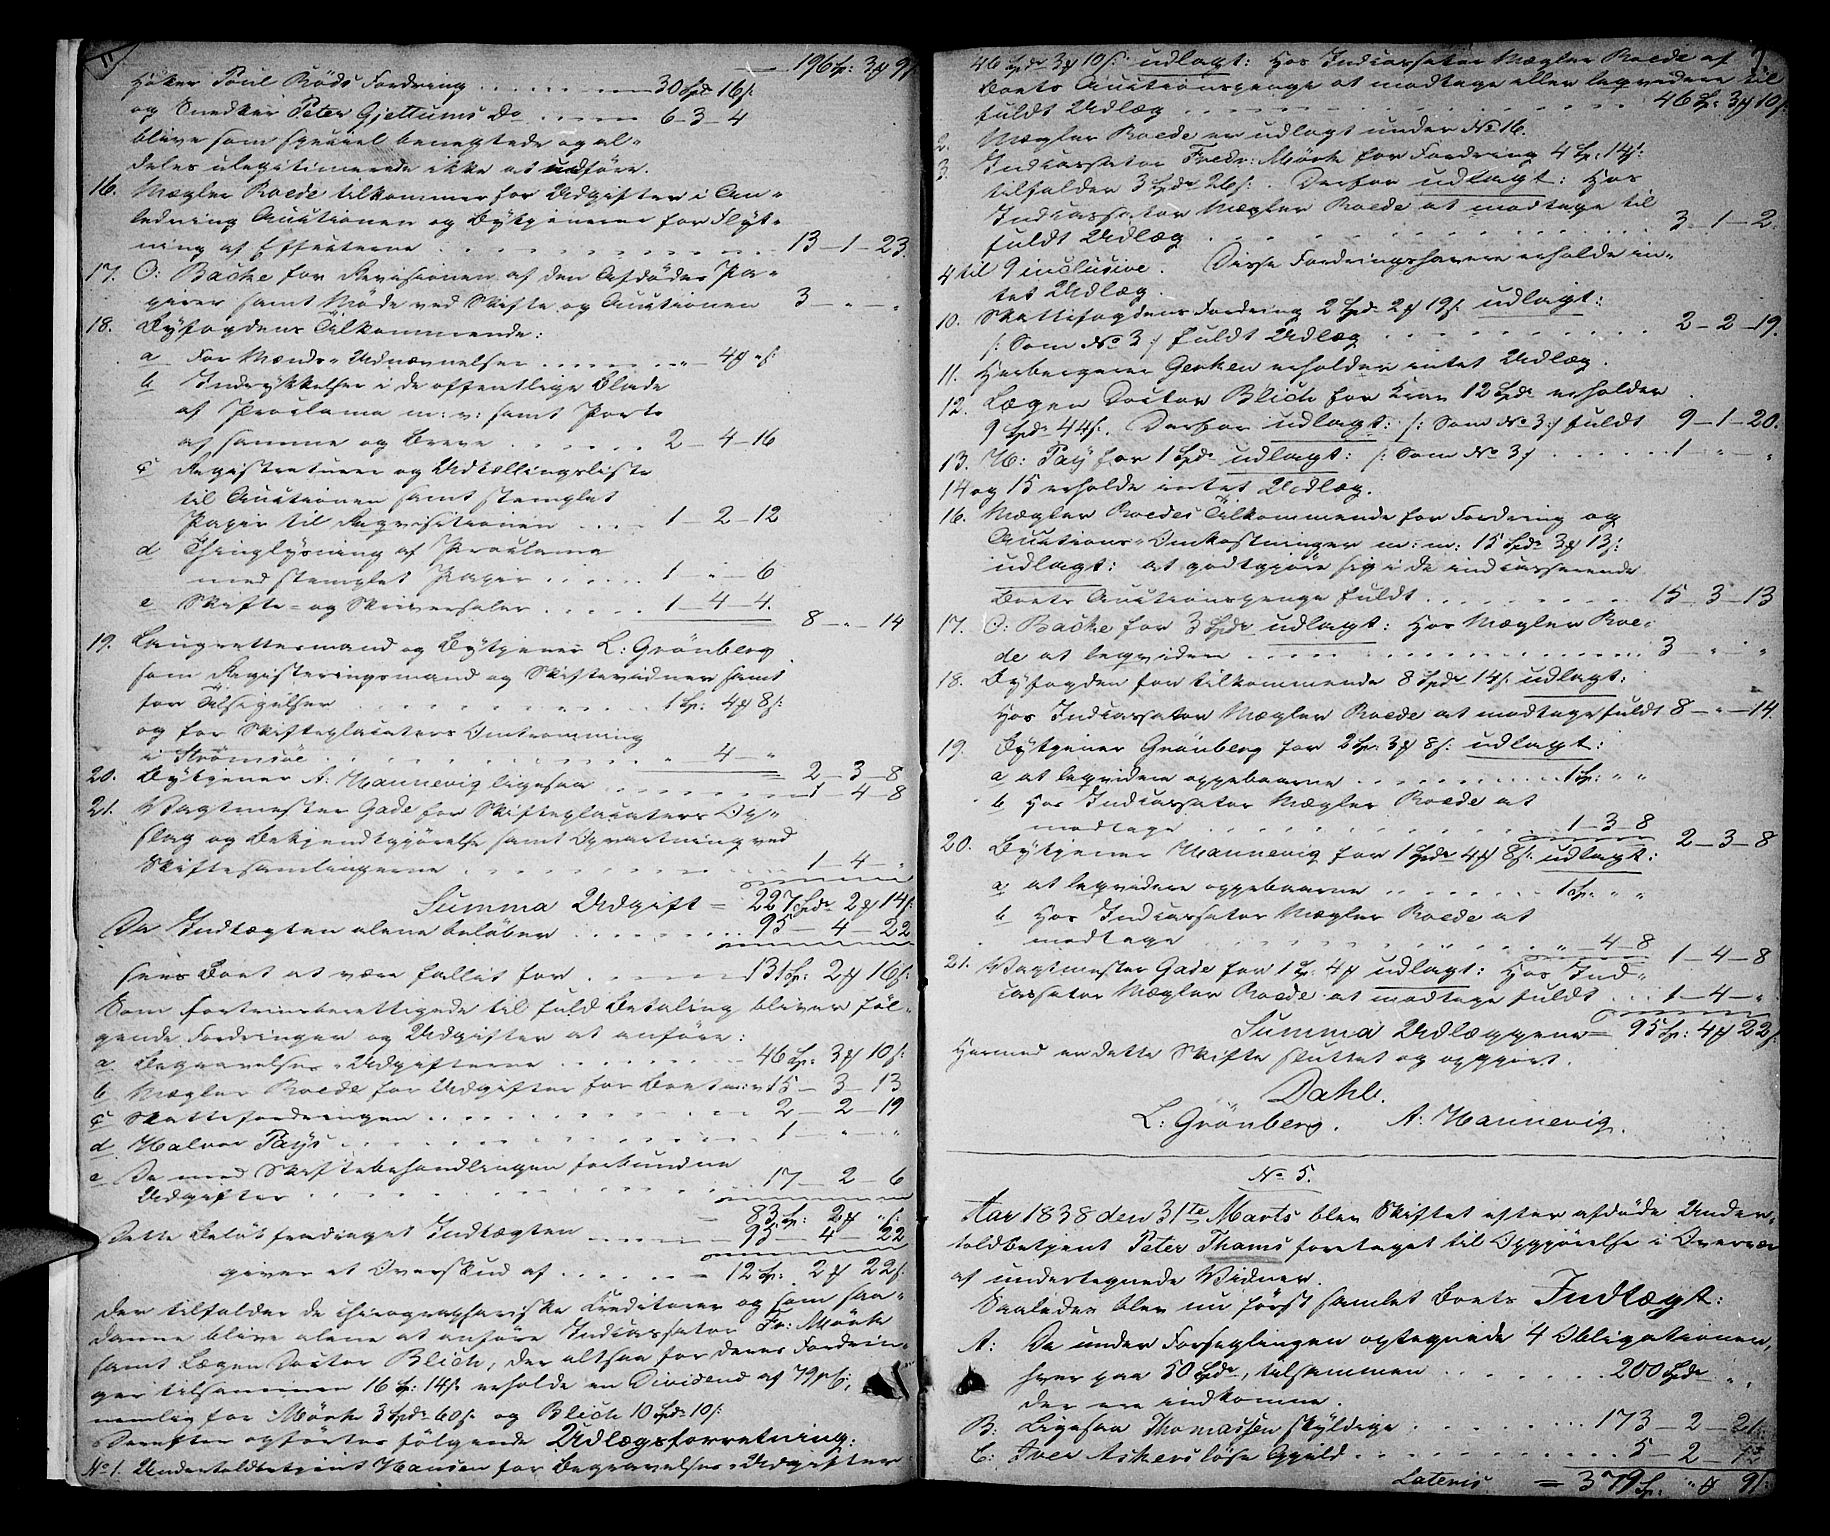 196 Sp: 3 # 9 s:
Høker Poul Röds Fordring . . . . . 30 Spd 16 s:
og Snedker Peter Gjettums Do . . . . 6 - 3 - 4
blive som specielt benegtede og al-
deles ulegitimerede ikke at udføre.
16. Mægler Roede tilkommer for Udgifter i An-
ledning Auctionen og Bytjenerne for Flyt-
ning af Effecterne . . . . 13 - 1 - 23.
17. O: Bache for Revisionen af den Afdødes Pa-
pirer samt Møde ved Skifte og Auctionen 3 - " - "
18. Byfogdens Tilkommende:
a For Mænds-Udnævnelser . . . . " - 4 # " s:
b Indrykkelser i de offentlige Blade
af Proclama m: v: samt Porto
af samme og Breve . . . . 2 - 4 - 16
c Registreturer og Udkallingsliste
til Auctionen samt stemplet
Papir til Reqvisitionen . . . . 1 - 2 - 12
d Thinglysning af Proclama
med stemplet Papir . . . . 1 - " - 6
e Skifte- og Skriversalær . . . . 1 - 4 - 4.
8 - " - 14
19. Laugrettesmand og Bytjener L: Grönberg
som Registreringsmand og Skiftevidner samt
for Tilsigelser . . . . 1 Sp: 4 # 8 s:
og for Skifteplacaters Omtromning
i Strömsöe . . . . " 4 - "
2 - 3 - 8
20. Bytjener A: Hannevig ligesaa . . . . 1 - 4 - 8
21. Vagtmester Gade for Skifteplacaters Op-
slag og Bekjendtgjørelse samt Opvartning ved
Skiftesamlingerne . . . . 1 - 4 - "
Summa Udgift = 227 Spdr 2 # 14 s:
Da Indtægten alene beløber . . . . 95 - 4 - 22
sees Boet at være fallit for . . . . 131 Sp: 2 # 16 s:
Som fortrinsberettigede til fuld Betaling bliver føl-
gende Fordringer og Udgifter at anføre:
a Begravelses-Udgifterne . . . . 46 Sp: 3 # 10 s:
b Mægler Roede for Udgifter for Boet m: v: 15 - 3 - 13
c Skattefordringen . . . . 2 - 2 - 19
d Halvor Pays . . . . 1 - " - "
e De med Skiftebehandlingen forbundne
Udgifter . . . . 17 - 2 - 6
83 Sp: 2 # " s:
Dette Beløb fradraget Indtægten . . . . 95 - 4 - 22
giver et Overskud af . . . . = 12 Sp: 2 # 22 s:
der tilfalder de chirographariske Creditorer og som saa-
danne blive alene at anføre Indcassator Fr: Mörk
samt Lægen Doctor Blich, der altsaa for deres Fordrin-
ger tilsammen 16 Sp: 14 s: erholde en Dividend af 79 pC:,
nemlig for Mörk 3 Spdr 60 s: og Blich 10 Spdr 10 s:
Derefter opførtes følgende Udlægsforretning:
No 1. Undertoldbetjent Hansen for Begravelses-Udgifter
46 Spdr 3 # 10 s: udlagt: Hos Indcassator Mægler Roede af
Boets Auctionspenge at modtage eller leqvidere til
fuldt Udlæg . . . . 46 Sp: 3 # 10 s:
2. Mægler Roede er udlagt under No 16.
3. Indcassator Fredr: Mörk for Fordring 4 Sp: 14 s:
tilfalder 3 Spdr 26 s:. Derfor udlagt: Hos
Indcassator Mægler Roede at modtage til
fuldt Udlæg . . . . 3 - 1 - 2.
4 til 9 inclusive. Disse Fordringshavere erholde in-
tet Udlæg.
10. Skattefogdens Fordring 2 Spdr 2 # 19 s: udlagt:
/: Som No 3 :/ fuldt Udlæg . . . . 2 - 2 - 19.
11. Herbergerer Gerken erholder intet Udlæg.
12. Lægen Doctor Blich for Krav 12 Spdr erholder
9 Spdr 44 s:. Derfor udlagt: /: Som No 3 :/ fuldt 9 - 1 - 20.
13. H: Pay for 1 Spdr udlagt: /: Som No 3 :/ . . . . 1 - " - "
14 og 15 erholde intet Udlæg.
16. Mægler Roedes Tilkommende for Fordring og
Auctions-Omkostninger m: m: 15 Spdr 3 # 13 s:
udlagt: at godtgjøre sig i de indcasserende
Boets Auctionspenge fuldt . . . . 15 - 3 - 13
17. O: Bache for 3 Spdr udlagt: Hos Mægler Roe-
de at leqvidere . . . . 3 " "
18. Byfogden for tilkommende 8 Spdr 14 s: udlagt:
Hos Indcassator Mægler Roede at modtage fuldt 8 - " - 14.
19. Bytjener Grönberg for 2 Sp: 3 # 8 s: udlagt:
a at leqvidere oppebaarne . . . . 1 Sp: " "
b Hos Indcassator Mægler Roede at
modtage . . . . 1 - 3 - 8
2 - 3 - 8
20. Bytjener Hannevig for 1 Spdr 4 # 8 s: udlagt:
a at leqvidere oppebaarne . . . . 1 Sp: " "
b Hos Indcassator Mægler Roede at
modtage . . . . " - 4 - 8
1 - 4 - 8
21. Vagtmester Gade for 1 Sp: 4 # udlagt: Hos Ind-
cassator Mægler Roede at modtage fuldt . . 1 - 4 - "
Summa Udlæggene = 95 Sp: 4 # 22 s:
Hermed er dette Skifte sluttet og opgjort.
Dahl.
L: Grönberg. A: Hannevig.
No 5.
Aar 1838 den 31te Marts blev Skiftet efter afdøde Under-
toldbetjent Peter Thams foretaget til Opgjørelse i Overvær
af undertegnede Vidner.
Saaledes blev nu først samlet Boets Indtægt:
A: De under Forseglingen optegnede 4 Obligationer,
hver paa 50 Spdr, tilsammen . . . . 200 Spdr " "
der ere indkomne.
B: Ligesaa Thomassen skyldige . . . . 173 - 2 - 21:
C: Iver Askersløse Gjeld . . . . 5 - 2 - 12
Lateris = 379 Sp. " # 9 s: